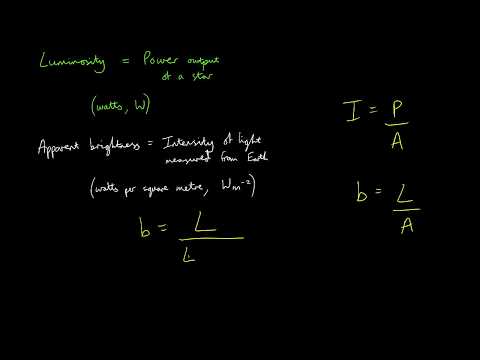 Luminosity = Power output
of a star
(watts, W)
Apparent brightness = Intensity of light
measured from Earth
(watts per square metre, Wm⁻²)
b = L
I = P
A
b = L
A